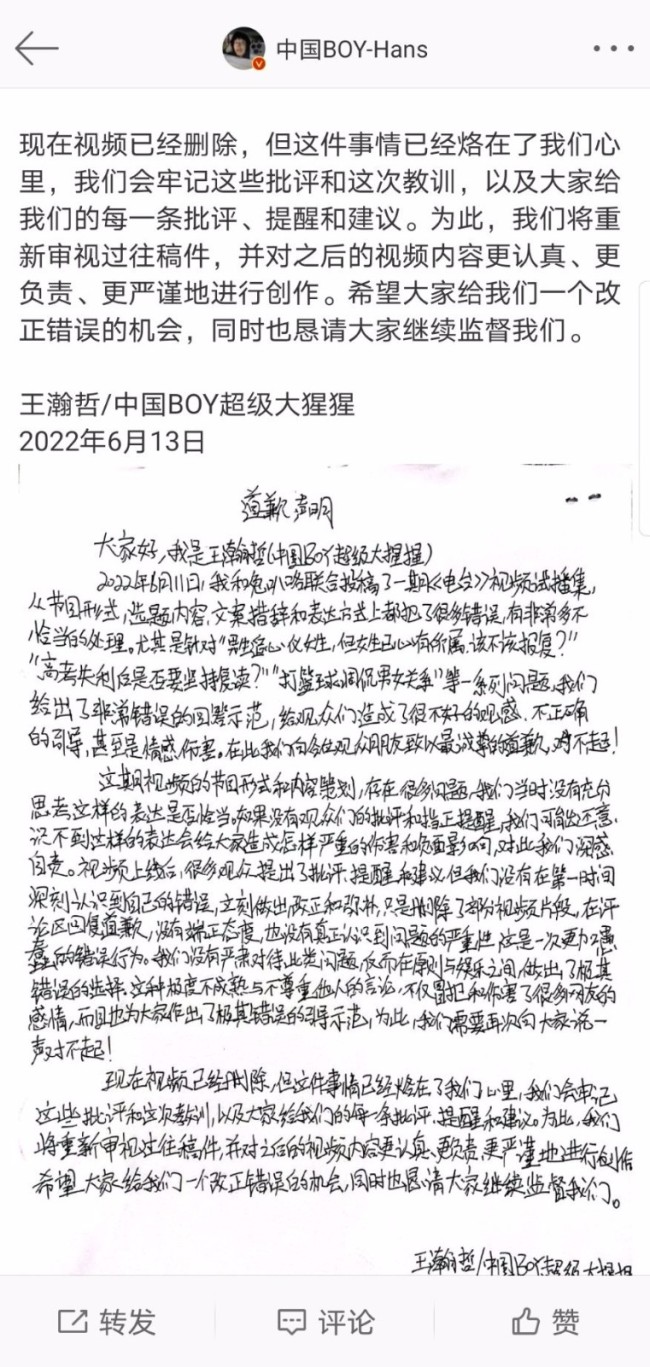 中国BOY-Hans
现在视频已经删除，但这件事情已经烙在了我们心
里，我们会牢记这些批评和这次教训，以及大家给
我们的每一条批评、提醒和建议。为此，我们将重
新审视过往稿件，并对之后的视频内容更认真、更
负责、更严谨地进行创作。希望大家给我们一个改
正错误的机会，同时也恳请大家继续监督我们。
王瀚哲/中国BOY超级大猩猩
2022年6月13日
道歉声明
大家好，我是王瀚哲(中国BOY超级大猩猩)
2022年6月11日，我和兔叭咯联合投稿了一期《电台》视频试播集，
从节目形式，选题内容，文案措辞和表达方式上都犯了很多错误，有非常多不
恰当的处理。尤其是针对"男生心仪女生，但女生已心有所属，该不该报复？"
"高考失利后是否要坚持复读？""打篮球调侃男女关系"等一系列问题，我们
给出了非常错误的回答示范，给观众们造成了很不好的观感、不正确
的引导，甚至是情感伤害。在此我们向各位观众朋友致以最诚挚的道歉，对不起！
这期视频的节目形式和内容策划，存在很多问题，我们当时没有充分
思考这样的表达是否恰当。如果没有观众们的批评和指正提醒，我们可能还意
识不到这样的表达会给大家造成怎样严重的伤害和负面影响，对此我们深感
自责。视频上线后，很多观众提出了批评、提醒和建议，但我们没有在第一时间
深刻认识到自己的错误，立刻做出改正和弥补，只是删除了部分视频片段，在评
论区回复道歉，没有端正态度，也没有真正认识到问题的严重性，这是一次更加愚
蠢的错误行为。我们没有严肃对待此类问题，反而在原则与娱乐之间，做出了极其
错误的选择，这种极度不成熟与不尊重他人的言论，不仅冒犯和伤害了很多网友的
感情，而且也为大家作出了极其错误的引导示范，为此，我们需要再次向大家说一
声对不起！
现在视频已经删除，但这件事情已经烙在了我们心里，我们会牢记
这些批评和这次教训，以及大家给我们的每一条批评、提醒和建议。为此，我们
将重新审视过往稿件，并对之后的视频内容更认真、更负责、更严谨地进行创作
希望大家给我们一个改正错误的机会，同时也恳请大家继续监督我们。
王瀚哲/中国BOY超级大猩猩
转发
评论
赞